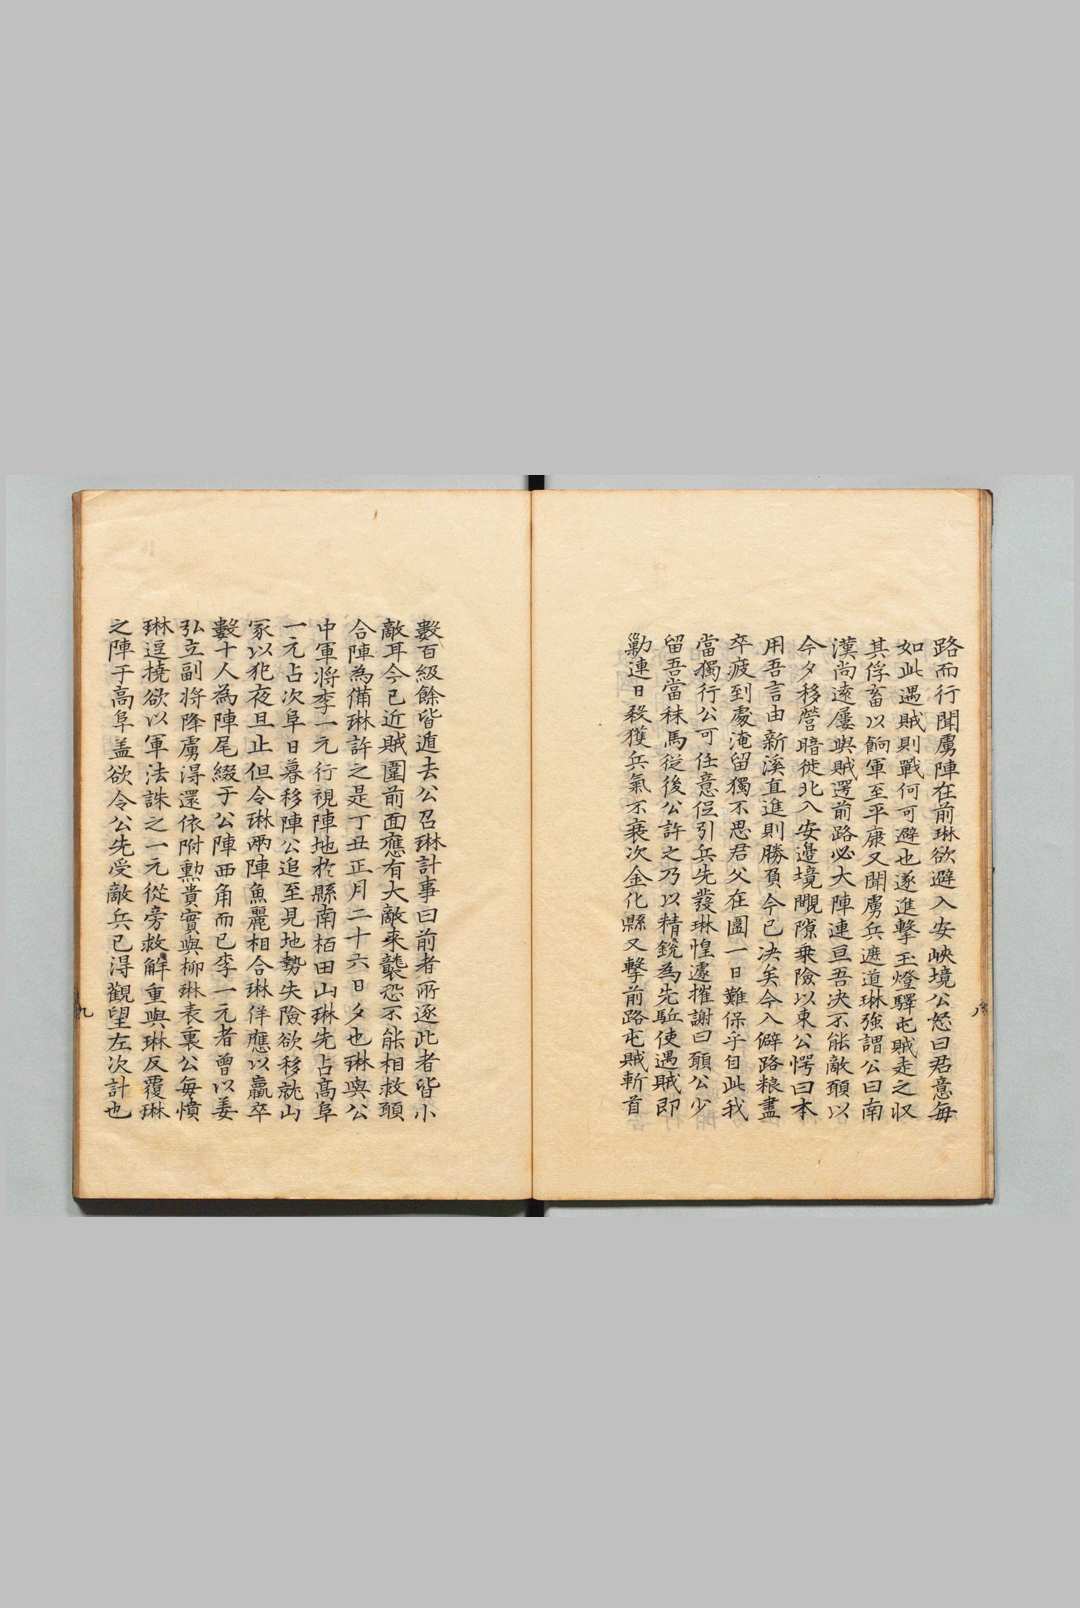 路而行聞虜陣在前琳欲避入安峽境公怒曰君意每
如此遇賊則戰何可避也遂進擊玉燈驛屯賊走之収
其俘畜以餉軍至平康又聞虜兵遮道琳強謂公曰南
漢尚遠屢與賊逻前路必大陣連亘吾決不能敵頋以
今夕移營暗徙北入安邊境覵隙乗險以東公愕曰本
用吾言由新溪直進則勝負今已決矣今入僻路粮盡
卒疲到處淹留獨不思君父在圍一日難保乎自此我
當獨行公可任意但引兵先發琳惶遽摧謝曰頋公少
留吾當秣馬従後公許之乃以精銳為先駈使遇賊即
勦連日殺獲兵氣不衰次金化縣又擊前路屯賊斬首
八
數百級餘皆遁去公召琳計事曰前者所逐此者皆小
敵耳今已近賊圍前面應有大敵来襲恐不能相救頋
合陣為備琳許之是丁丑正月二十六日夕也琳與公
中軍将李一元行視陣地於縣南栢田山琳先占高阜
一元占次阜日暮移陣公追至見地勢失險欲移就山
冢以犯夜旦止但令琳兩陣魚麗相合琳佯應以羸卒
數十人為陣尾綴于公陣西角而已李一元者曾以姜
弘立副将降虜淂還依附勲貴實與柳琳表裏公每憤
琳逗撓欲以軍法誅之一元從旁救解重與琳反覆琳
之陣于高阜盖欲令公先受敵兵已得觀望左次計也
九